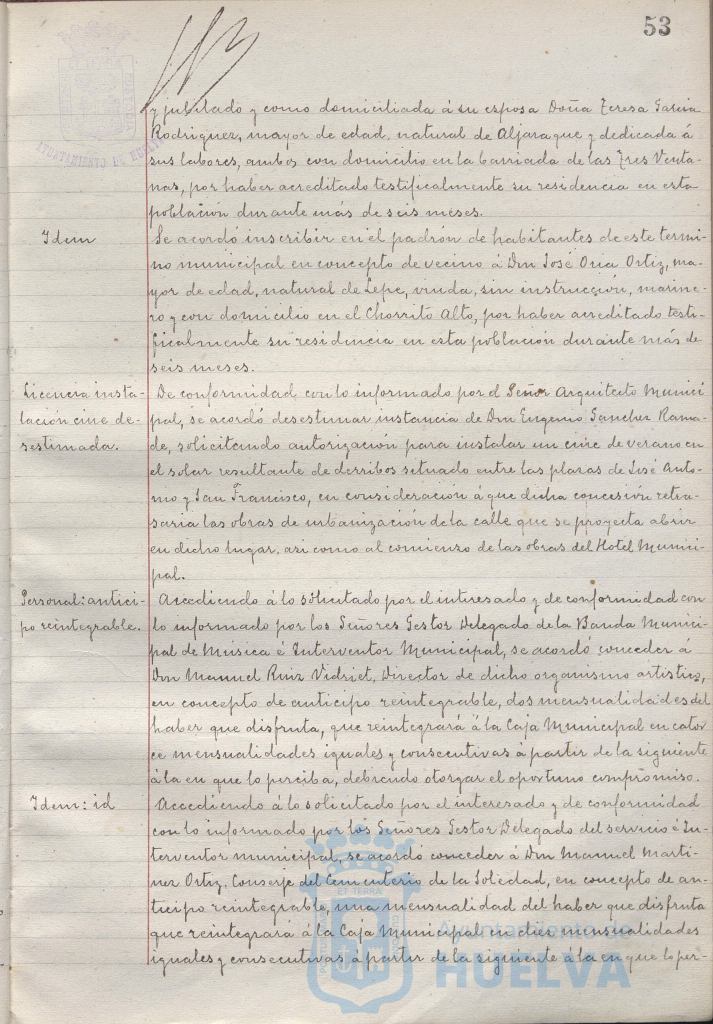 53
AYUNTAMIENTO DE HUELVA
y jubilado y como domiciliada á su esposa Doña Teresa Garcia
Rodriguez, mayor de edad, natural de Aljaraque y dedicada á
sus labores, ambos con domicilio en la barriada de las Tres Venta-
nas, por haber acreditado testificalmente su residencia en esta
población durante más de seis meses.
Idem
Se acordó inscribir en el padrón de habitantes de este termi-
no municipal en concepto de vecino á Don José Oria Ortiz, ma-
yor de edad, natural de Lepe, viudo, sin instrucción, marine-
ro y con domicilio en el Chorrito Alto, por haber acreditado testi-
ficalmente su residencia en esta población durante más de
seis meses.
Licencia insta-
lación cine de-
sestimada.
De conformidad con lo informado por el Señor Arquitecto Munici-
pal, se acordó desestimar instancia de Don Eugenio Sanchez Rama-
de, solicitando autorización para instalar un cine de verano en
el solar resultante de derribos situado entre las plazas de José Anto-
nio y San Francisco, en consideración á que dicha concesión retra-
saria las obras de urbanización de la calle que se proyecta abrir
en dicho lugar, asi como al comienzo de las obras del Hotel Munici-
pal.
Personal: antici-
po reintegrable.
Accediendo á lo solicitado por el interesado y de conformidad con
lo informado por los Señores Gestor Delegado de la Banda Munici-
pal de Música é Interventor Municipal, se acordó conceder á
Don Manuel Ruiz Vidriet, Director de dicho organismo artistico,
en concepto de anticipo reintegrable, dos mensualidades del
haber que disfruta, que reintegrará á la Caja Municipal en cator-
ce mensualidades iguales y consecutivas á partir de la siguiente
á la en que lo perciba, debiendo otorgar el oportuno compromiso.
Idem: id
Accediendo á lo solicitado por el interesado y de conformidad
con lo informado por los Señores Gestor Delegado del servicio é In-
terventor municipal, se acordó conceder á Don Manuel Marti-
nez Ortiz, Conserje del Cementerio de la Soledad, en concepto de an-
ticipo reintegrable, una mensualidad del haber que disfruta
que reintegrará á la Caja Municipal en diez mensualidades
iguales y consecutivas á partir de la siguiente á la en que lo per-
Ayuntamiento de
HUELVA